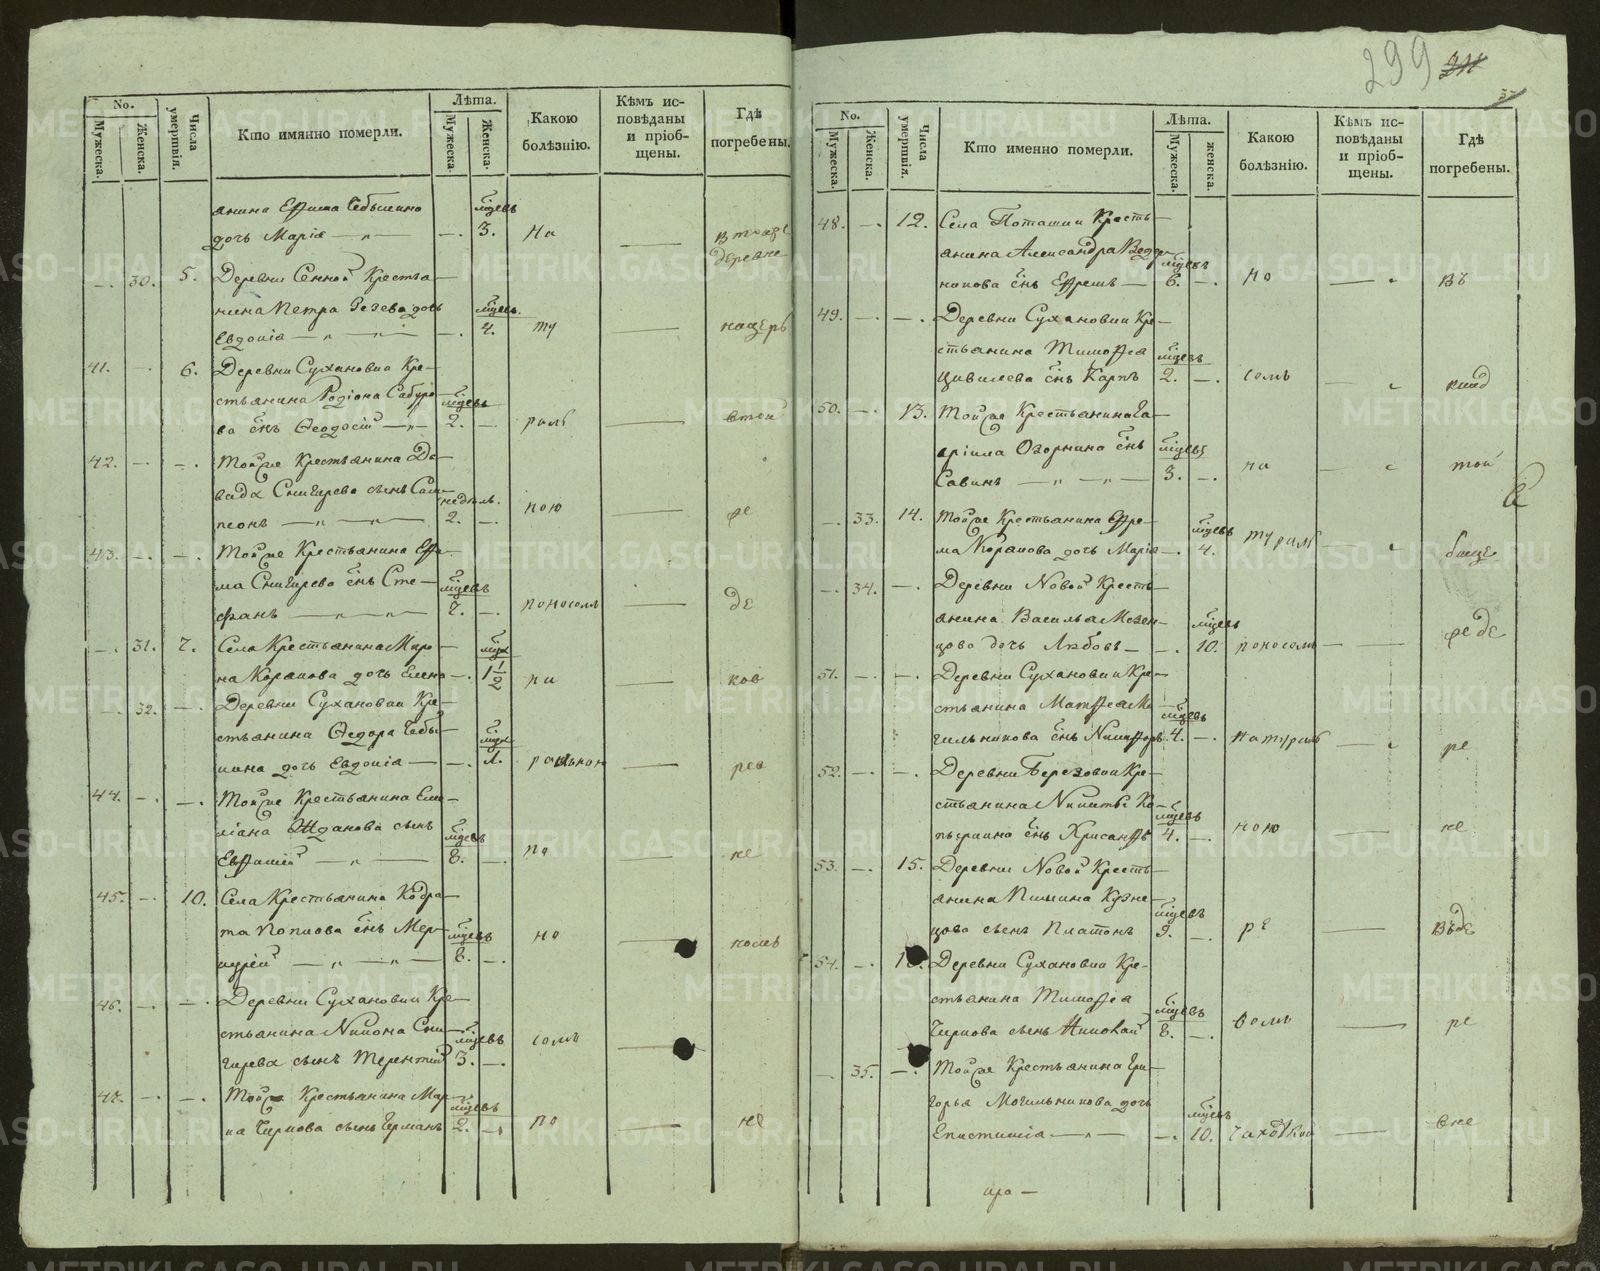 299
No.
Мужеска.
Женска.
Числа умертвія.
Кто имянно померли.
Лѣта.
Мужеска.
Женска.
Какою болѣзнію.
Кѣмъ исповѣданы и пріобщены.
Гдѣ погребены.
дочь Марія — 3. На
деревне
— 30. 5. Деревни Сенной Крестья-
нина Петра дочь
Евдокія — 4. ту
41. — 6. Деревни Сухановки Кре-
стьянина Родіона Сабуро-
ва снъ Ѳеодосій — 2. — раль втой
42. — — Тойже Крестьянина Да-
вида Снигирева сынъ Сам-
псонъ — 2. — ною же
43. — — Тойже Крестьянина Ефи-
ма Снигирева снъ Сте-
фанъ — 7. — поносомъ де
— 31. 7. Села Крестьянина Миро-
на Коракова дочь Елена — 1 1/2
— 32. — Деревни Сухановки Кре-
стьянина Ѳедора Чебы-
кина дочь Евдокія — 1.
44. — — Тойже Крестьянина Еме-
ліана Жданова сынъ
Евфимій — 8. — по не
45. — 10. Села Крестьянина Кодра-
та Попкова снъ Мер-
курій — 8. — но
46. — — Деревни Сухановки Кре-
стьянина Никона Сни-
гирева сынъ Терентий 3. — сомъ
47. — — Тойже Крестьянина Мар-
ка Чиркова сынъ Германъ 2. — по не
No.
Мужеска.
Женска.
Числа умертвія.
Кто именно померли.
Лѣта.
Мужеска.
женска.
Какою болѣзнію.
Кѣмъ исповѣданы и пріобщены.
Гдѣ погребены.
48. — 12. Села Поташки Кресть-
янина Александра Водо-
никова снъ Ефремъ — 6. — но въ
49. — — Деревни Сухановки Кре-
стьянина Тимофея
Цивилева снъ Карпъ 2. — сомъ
50. — 13. Тойже Крестьянина Га-
вріила Озорнина снъ
Савинъ — 3. — на той
— 33. 14. Тойже Крестьянина Ефре-
ма Коракова дочь Марія — 4. турал
— 34. — Деревни Новой Кресть-
янина Василья Мезен-
цова дочь Любовь — 10. поносомъ же де
51. — — Деревни Сухановки Кре-
стьянина Матфея Мо-
гильникова снъ Никифоръ 4. — натураль ре
52. — — Деревни Березовки Кре-
стьянина Никиты Ко-
пьркина снъ Хрисанфъ 4. — ною не
53. — 15. Деревни Новой Кресть-
янина Пимина Кузне-
цова сынъ Платонъ 9. — ре въде
54. — Деревни Сухановки Кре-
стьянина Тимофея
Чиркова сынъ Николай 8. — ре
— 35. — Тойже Крестьянина Гри-
горья Могильникова дочь
Епистимія — 10. чахоткой вне